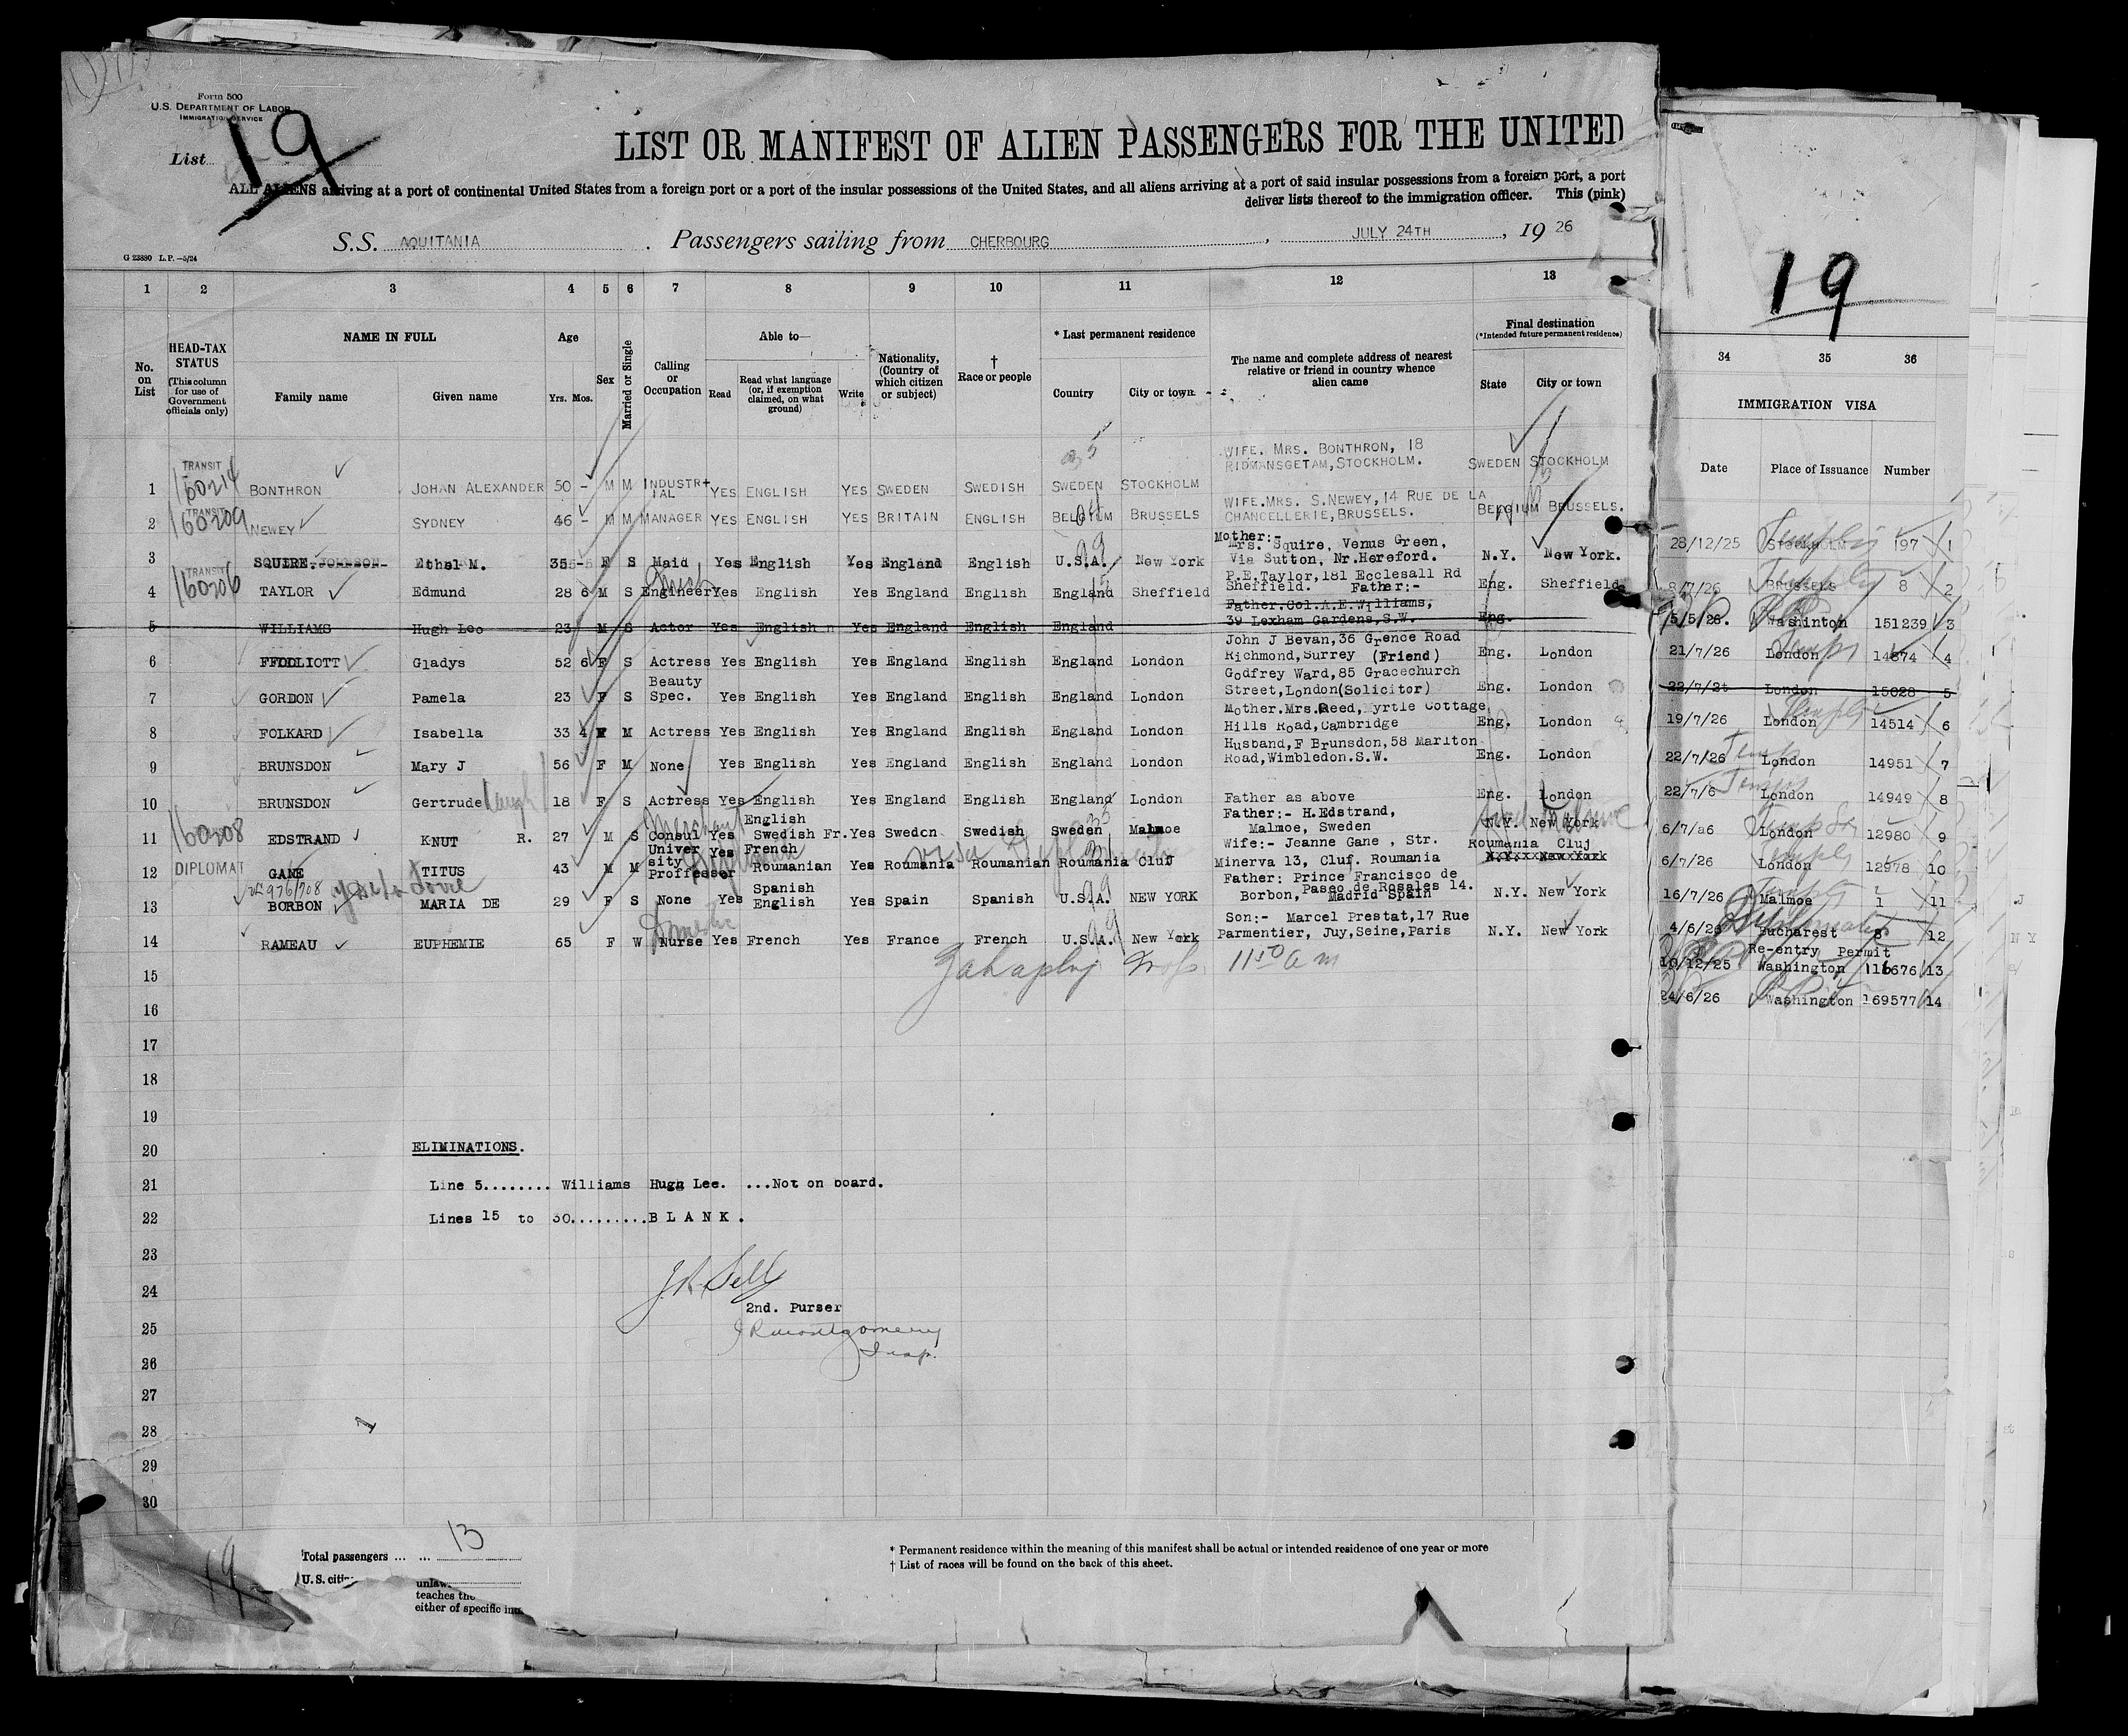 Form 500
U.S. DEPARTMENT OF LABOR
IMMIGRATION SERVICE
List 19
LIST OR MANIFEST OF ALIEN PASSENGERS FOR THE UNITED
ALL ALIENS arriving at a port of continental United States from a foreign port or a port of the insular possessions of the United States, and all aliens arriving at a port of said insular possessions from a foreign port, a port
deliver lists thereof to the immigration officer. This (pink)
S.S. AQUITANIA . Passengers sailing from CHERBOURG , JULY 24TH , 19 26
G 23880 L.P.—5/24
19
1 2 3 4 5 6 7 8 9 10 11 12 13
34 35 36
No. on List
HEAD-TAX STATUS
(This column for use of Government officials only)
NAME IN FULL
Family name Given name
Age
Yrs. Mos.
Sex
Married or Single
Calling or Occupation
Able to—
Read
Read what language (or, if exemption claimed, on what ground)
Write
Nationality, (Country of which citizen or subject)
†
Race or people
* Last permanent residence
Country City or town
The name and complete address of nearest relative or friend in country whence alien came
Final destination
(*Intended future permanent residence)
State City or town
IMMIGRATION VISA
Date Place of Issuance Number
WIFE. MRS. BONTHRON, 18
TRANSIT RIDMANSGETAM, STOCKHOLM.
1 160214 BONTHRON JOHAN ALEXANDER 50 - M M INDUSTRIAL YES ENGLISH YES SWEDEN SWEDISH SWEDEN STOCKHOLM SWEDEN STOCKHOLM
TRANSIT WIFE.MRS. S.NEWEY, 14 RUE DE LA
2 160209 NEWEY SYDNEY 46 - M M MANAGER YES ENGLISH YES BRITAIN ENGLISH BELGIUM BRUSSELS CHANCELLERIE, BRUSSELS. BELGIUM BRUSSELS.
Mother:-
Mrs. Squire, Venus Green,
3 SQUIRE. JOHNSON Ethel M. 35 F S Maid Yes English Yes England English U.S.A. New York Via Sutton, Nr.Hereford. N.Y. New York.
TRANSIT P.E.Taylor, 181 Ecclesall Rd
4 160206 TAYLOR Edmund 28 6 M S Engineer Yes English Yes England English England Sheffield Sheffield. Father:- Eng. Sheffield
Father.Col.A.E.Williams,
5 WILLIAMS Hugh Leo 23 M S Actor Yes English Yes England English England 39 Lexham Gardens, S.W. Eng.
John J Bevan, 36 Grence Road
6 FFOLLIOTT Gladys 52 6 F S Actress Yes English Yes England English England London Richmond, Surrey (Friend) Eng. London
Beauty Godfrey Ward, 85 Gracechurch
7 GORDON Pamela 23 F S Spec. Yes English Yes England English England London Street, London (Solicitor) Eng. London
Mother.Mrs.Reed, yrtle Cottage
8 FOLKARD Isabella 33 4 F M Actress Yes English Yes England English England London Hills Road, Cambridge Eng. London
Husband, F Brunsdon, 58 Marlton
9 BRUNSDON Mary J 56 F M None Yes English Yes England English England London Road, Wimbledon.S.W. Eng. London
10 BRUNSDON Gertrude 18 F S Actress Yes English Yes England English England London Father as above Eng. London
Merchant English Father:- H.Edstrand,
11 160208 EDSTRAND KNUT R. 27 M S Consul Yes Swedish Fr. Yes Sweden Swedish Sweden Malmoe Malmoe, Sweden N.Y. New York
University Yes French Wife:- Jeanne Gane , Str. Roumania Cluj
12 DIPLOMAT GANE TITUS 43 M M Proffessor Roumanian Yes Roumania Roumanian Roumania Cluj Minerva 13, Cluj, Roumania N.Y. New York
Spanish Father: Prince Francisco de
13 BORBON MARIA DE 29 F S None Yes English Yes Spain Spanish U.S.A. NEW YORK Borbon, Paseo de Rosales 14. Madrid Spain N.Y. New York
Domestic Son:- Marcel Prestat, 17 Rue
14 RAMEAU EUPHEMIE 65 F W Nurse Yes French Yes France French U.S.A. New York Parmentier, Juy, Seine, Paris N.Y. New York
28/12/25 STOCKHOLM 197 1
8/7/26 BRUSSELS 8 2
5/5/26. Washinton 151239 3
21/7/26 London 14874 4
22/7/2t London 15028 5
19/7/26 London 14514 6
22/7/26 London 14951 7
22/7/6 London 14949 8
6/7/a6 London 12980 9
6/7/26 London 12978 10
16/7/26 Malmoe 1 11
4/6/26 Bucharest 8 12
Re-entry Permit
10/12/25 Washington 116676 13
24/6/26 Washington 169577 14
11 50 a m
15
16
17
18
19
20 ELIMINATIONS.
21 Line 5........ Williams Hugh Lee. ...Not on board.
22 Lines 15 to 30.........B L A N K .
23
24
2nd. Purser
25 R Montgomery
Insp.
26
27
28
29
30
19
Total passengers ... ... 13
U.S. citi
unlaw
teaches the
either of specific
* Permanent residence within the meaning of this manifest shall be actual or intended residence of one year or more
† List of races will be found on the back of this sheet.